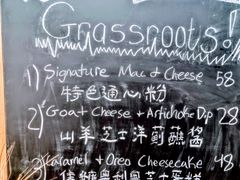 Grassroots!
1) Signature Mac & Cheese 58
特色通心粉
2) Goat Cheese + Artichoke Dip 28
山羊芝士洋薊蘸醬
3) Caramel + Oreo Cheesecake 48
焦糖奧利奧芝士蛋糕